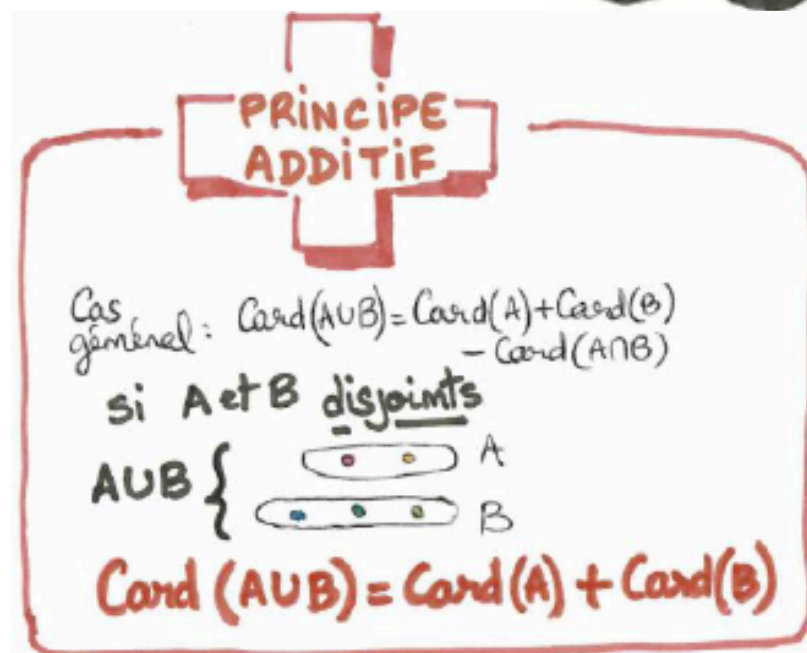 PRINCIPE
ADDITIF
Cas
général : Card(A∪B) = Card(A) + Card(B)
- Card(A∩B)
si A et B disjoints
A∪B { A
B
Card (A∪B) = Card(A) + Card(B)